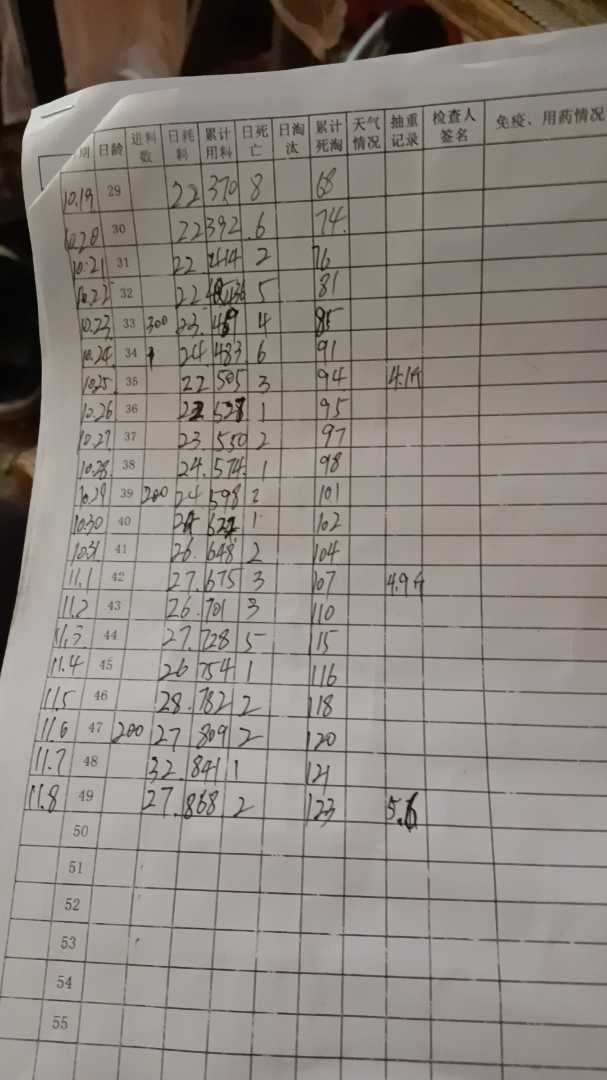 期 日龄 进料数 日耗料 累计用料 日死亡 日淘汰 累计死淘 天气情况 抽重记录 检查人签名 免疫、用药情况
10.19 29 22 370 8 68
10.20 30 22 392 6 74
10.21 31 22 414 2 76
10.22 32 22 436 5 81
10.23 33 300 23 4 85
10.24 34 24 483 6 91
10.25 35 22 505 3 94 4.1斤
10.26 36 22 527 1 95
10.27 37 23 550 2 97
10.28 38 24 574 1 98
10.29 39 200 24 598 2 101
10.30 40 24 622 1 102
10.31 41 26 648 2 104
11.1 42 27 675 3 107 4.9斤
11.2 43 26 701 3 110
11.3 44 27 728 5 115
11.4 45 26 754 1 116
11.5 46 28 782 2 118
11.6 47 200 27 809 2 120
11.7 48 32 841 1 121
11.8 49 27 868 2 123 5.6
50
51
52
53
54
55